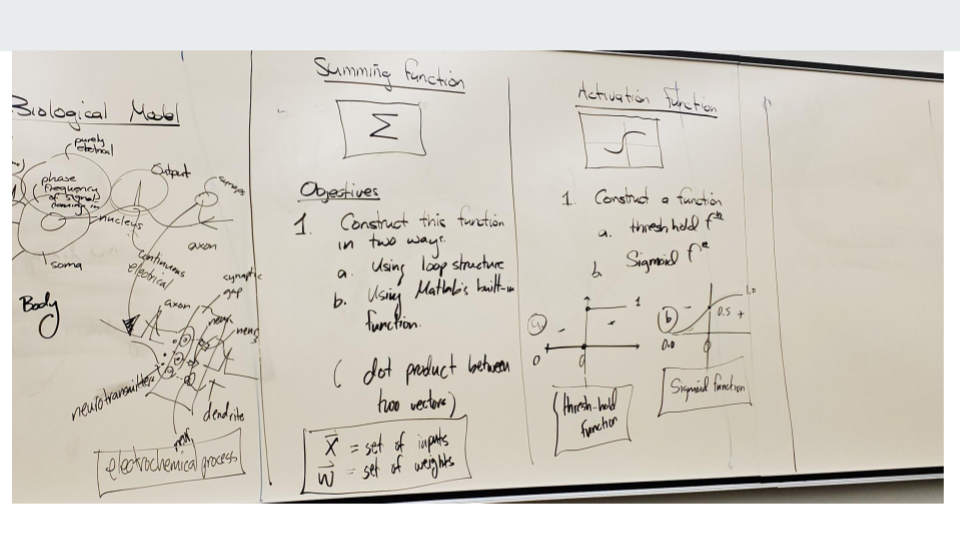 Biological Model
purely electrical
phase
frequency
of signal
coming in
Output
synaps
nucleus
axon
soma
continuous
electrical
synaptic
gap
Body
axon
neurotransmitters
dendrite
electrochemical process
Summing function
Σ
Objectives
1. Construct this function
in two ways.
a. Using loop structure
b. Using Matlab's built-in
function.
( dot product between
two vectors)
X = set of inputs
W = set of weights
Activation Function
1. Construct a function
a. threshhold fⁿ
b. Sigmoid fⁿ
a
-
1
+
0
0
thresh-hold
function
b
-
1.0
0.5 +
0.0
0
Sigmoid function